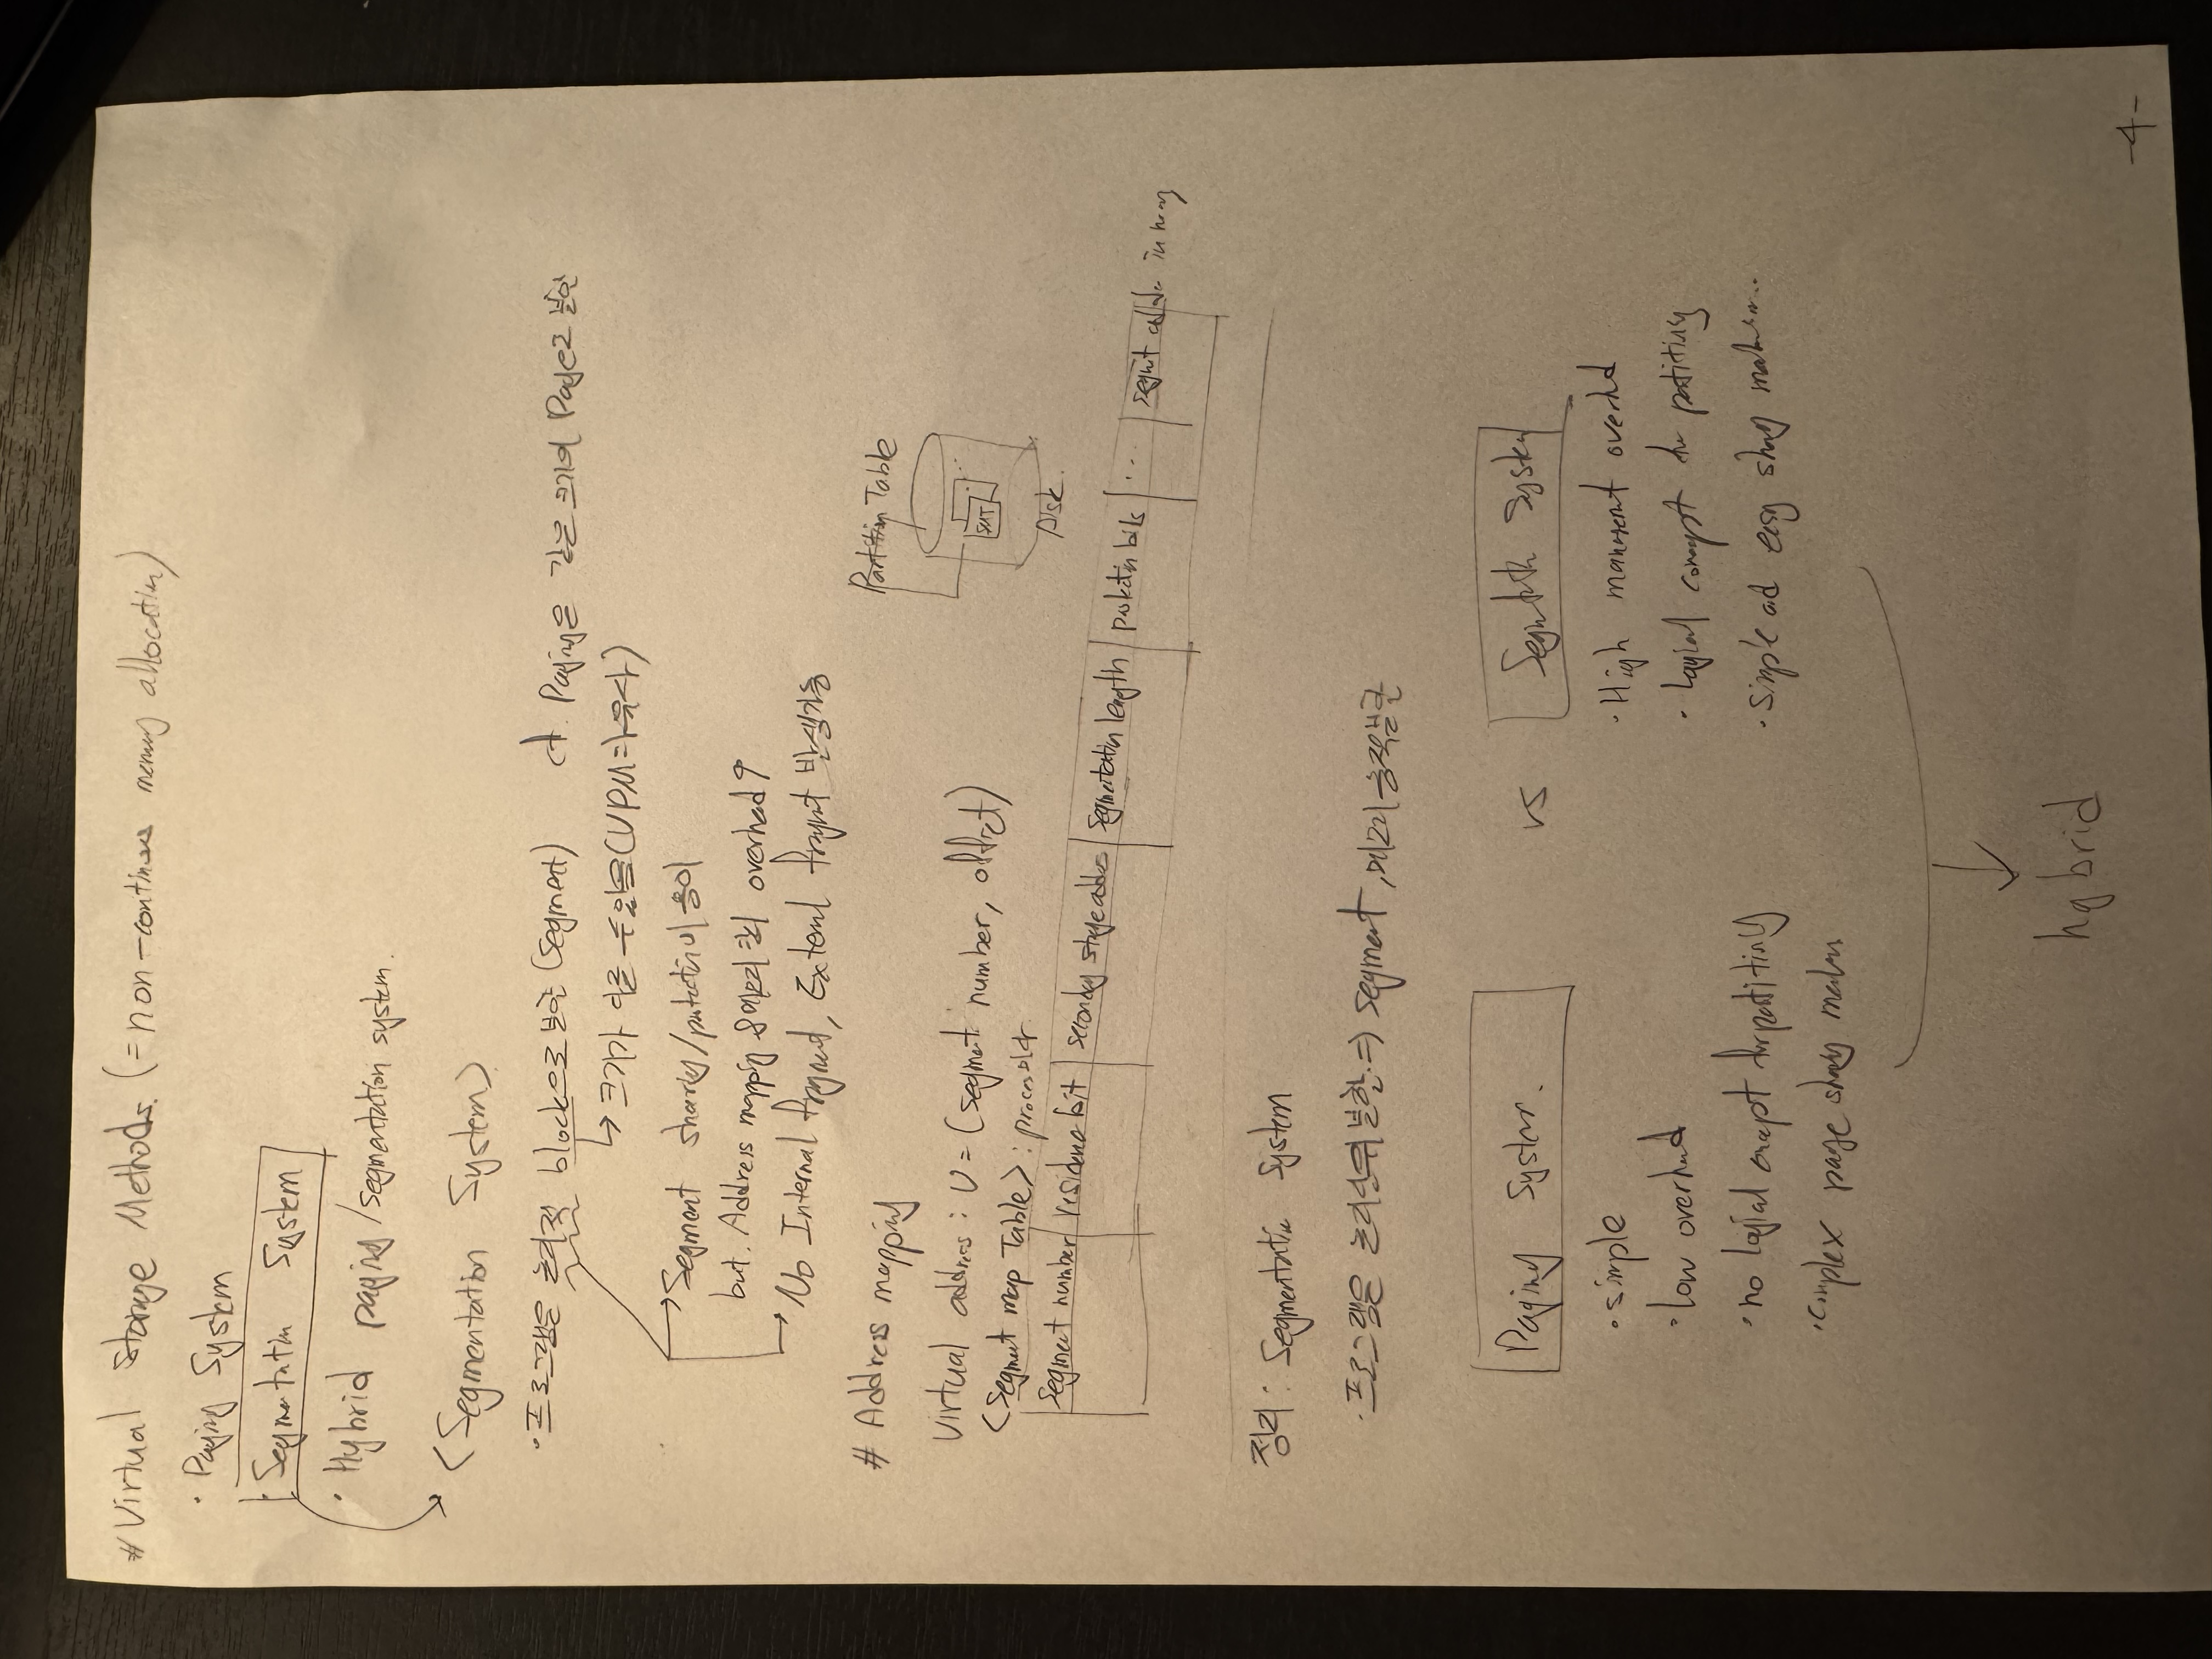 # Virtual Storage Methods. (= non-continuous memory allocation)
· Paging System
· Segmentation System
· Hybrid paging/segmentation system.
<Segmentation System>
· 프로그램은 논리적 block으로 분할 (Segment)
cf. Paging은 같은 크기의 Page로 분할
→ 크기가 다를 수 있음(VPM과 유사)
→ Segment sharing/protection이 용이
but. Address mapping 메모리 관리 overhead↑
→ No Internal fragment, External fragment 발생가능
# Address mapping
Partition Table
SMT
Disk.
Virtual address : v = (segment number, offset)
<Segment map Table> : process마다
segment number
residence bit
secondary storage address
segmentation length
protection bits
...
segment address in memory
정리 : Segmentation System
· 프로그램은 논리단위 분할 ⇒ segment, 메모리 동적분할
Paging System.
vs
Segmentation System
· simple
· low overhead
· no logical concept for partitining
· complex page sharing mechanism
· High management overhead
· logical concept for partitining
· simple and easy sharing mechanism..
↓
hybrid
-4-